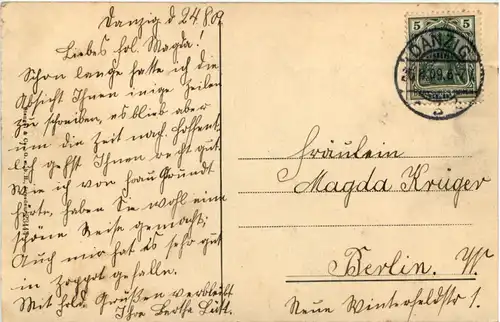 Danzig d 24.8.09
Liebes frl. Magda!
Schon lange hatte ich die
Absicht Ihnen einige Zeilen
zu schreiben, es blieb aber
um die Zeit nach. Hoffent-
lich gehst Ihnen recht gut
Wie ich von Frau Grundt
hörte, haben Sie wohl eine
schöne Reise gemacht;
Auch mir hat es sehr gut
in Zoppot gefallen.
Mit frdl. Grüßen verbleibt
Ihre Lütt.
5 5
DANZIG
Fräulein
Magda Krüger
Berlin. W.
Neue Winterfeldstr 1.